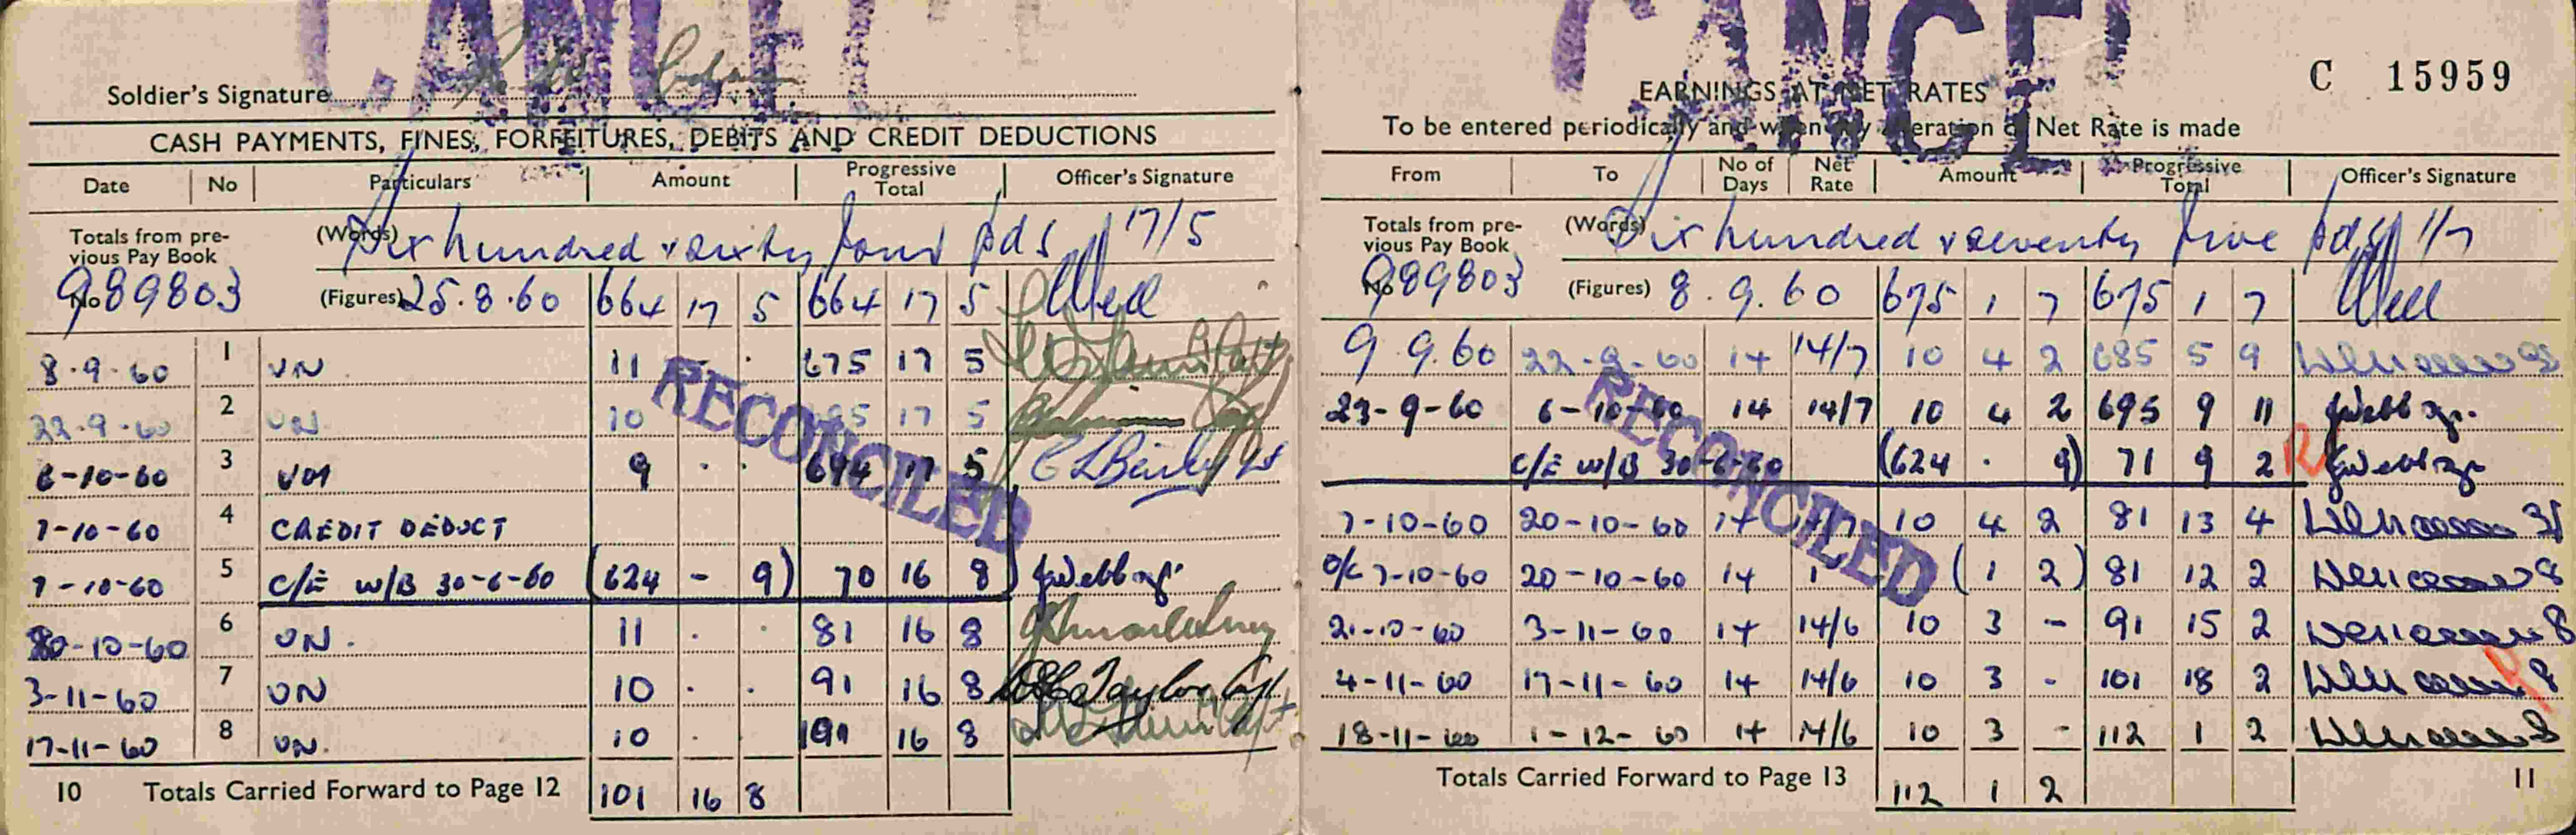 CANCEL
Soldier's Signature
CASH PAYMENTS, FINES, FORFEITURES, DEBITS AND CREDIT DEDUCTIONS
Date No Particulars Amount Progressive Total Officer's Signature
Totals from previous Pay Book No 989803 (Words) Six hundred & sixty four pds 17/5
(Figures) 25.8.60 664 17 5 664 17 5
8.9.60 1 VN 11 . . 675 17 5
22.9.60 2 VN 10 685 17 5
6-10-60 3 VM 9 . . 694 17 5
7-10-60 4 CREDIT DEDUCT
7-10-60 5 C/E W/B 30-6-60 (624 - 9) 70 16 8
20-10-60 6 VN. 11 . . 81 16 8
3-11-60 7 VN 10 . . 91 16 8 Taylor Capt
17-11-60 8 VN. 10 . . 101 16 8
10 Totals Carried Forward to Page 12 101 16 8
RECONCILED
CANCEL
C 15959
EARNINGS AT NET RATES
To be entered periodically and when any alteration of Net Rate is made
From To No of Days Net Rate Amount Progressive Total Officer's Signature
Totals from previous Pay Book No 989803 (Words) Six hundred & seventy five pds 1/7
(Figures) 8.9.60 675 1 7 675 1 7
9.9.60 22-9-60 14 14/7 10 4 2 685 5 9
23-9-60 6-10-60 14 14/7 10 4 2 695 9 11
C/E W/B 30-6-60 (624 . 9) 71 9 2 R
7-10-60 20-10-60 14 14/7 10 4 2 81 13 4
O/C 7-10-60 20-10-60 14 1 (1 2) 81 12 2
21-10-60 3-11-60 14 14/6 10 3 - 91 15 2
4-11-60 17-11-60 14 14/6 10 3 - 101 18 2
18-11-60 1-12-60 14 14/6 10 3 - 112 1 2
Totals Carried Forward to Page 13 112 1 2 11
RECONCILED